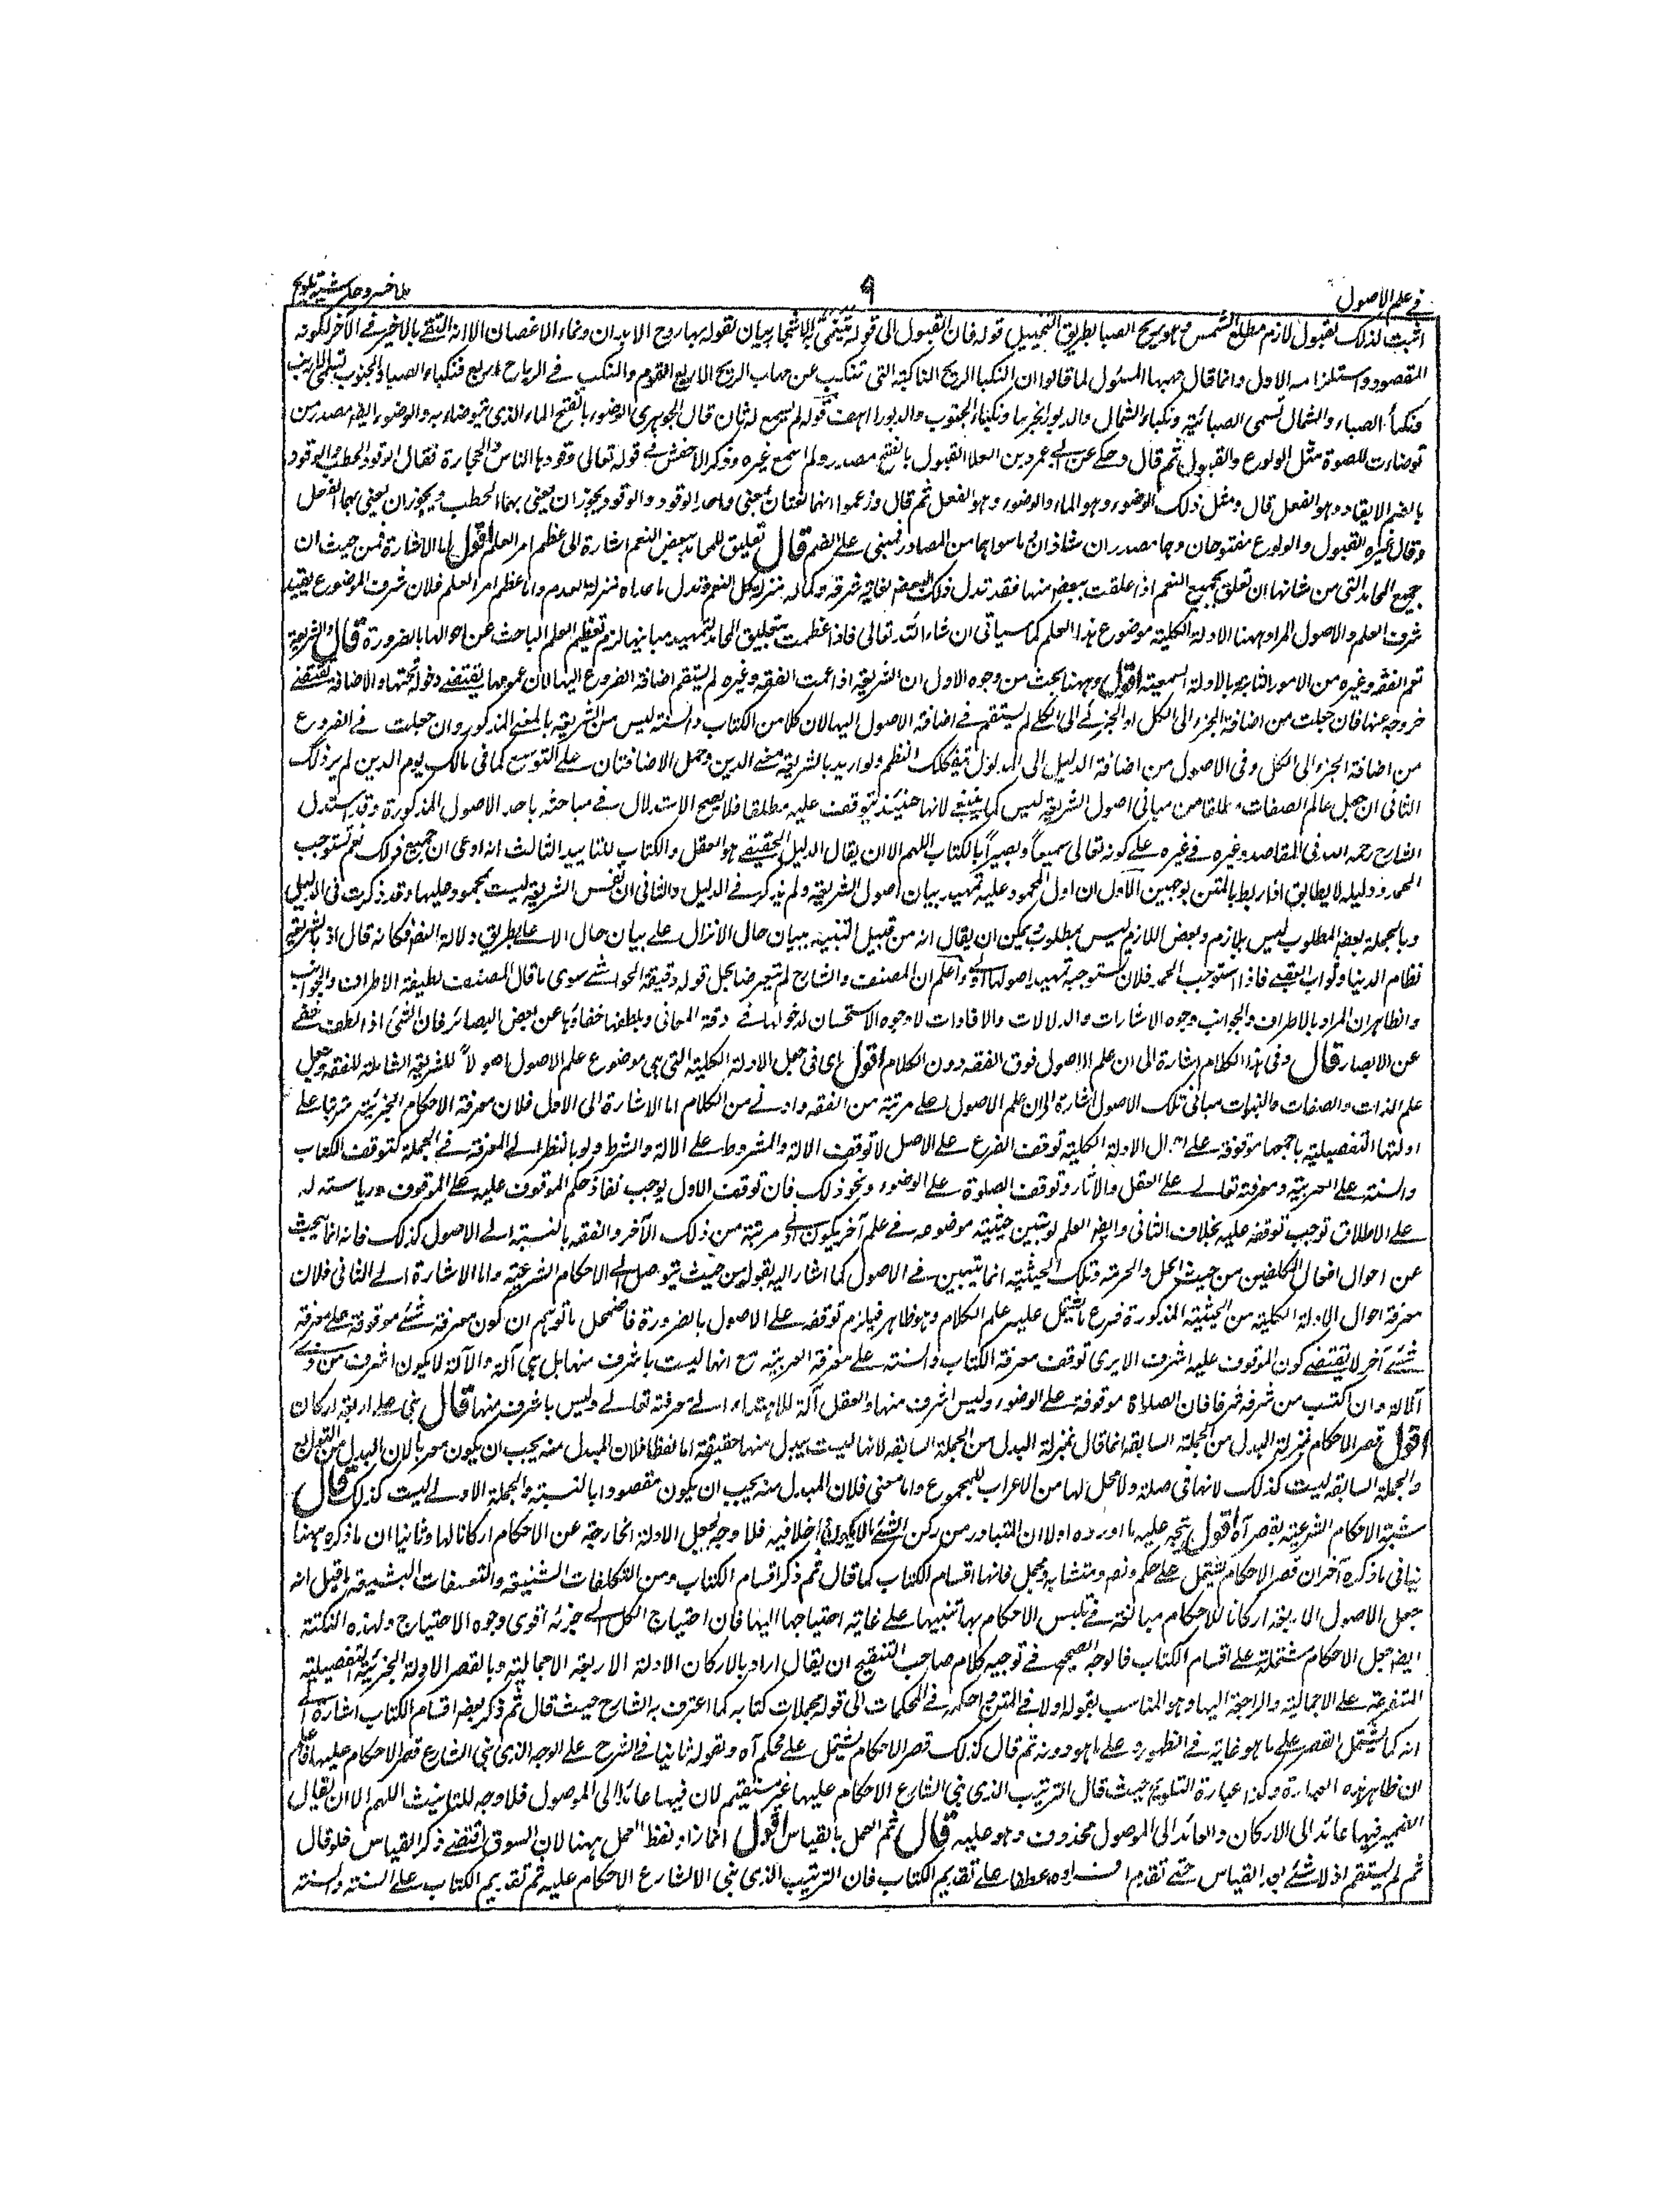 في علم الاصول
٩
ملا خسرو حاشية تلويح
اثبت لذلك القبول لازم مطلع الشمس وهو ريح الصبا بطريق التخييل قوله فان القبول الى قوله تنمى به الاشجار بيان لقوله بها روح الابدان ونماء الاغصان الا انه اكتفى بالاخير في الآخر لكونه
المقصود واستلزامه الاول وانما قال مهبها المستوى لما قالوا ان النكبا الريح الناكبة التي تنكب عن مهاب الرياح الاربع القوم والنكب في الرياح اربع فنكباء الصبا والجنوب تسمى الازيب
ونكباء الصباء والشمال تسمى الصبائية ونكباء الشمال والدبور الجربيا ونكباء الجنوب والدبور الهيف قوله لم يسمع له ثان قال الجوهري الوضوء بالفتح الماء الذي يتوضاء به والوضوء ايضا مصدر من
توضات للصلوة مثل الولوع والقبول ثم قال وحكى عن ابي عمرو بن العلا القبول بالفتح مصدر ولم اسمع غيره وذكر الاخفش في قوله تعالى وقودها الناس والحجارة فقال الوقود الحطب والوقود
بالضم الايقاد وهو الفعل قال ومثل ذلك الوضوء وهو الماء والوضوء وهو الفعل ثم قال وزعموا انهما لغتان بمعنى واحد الوقود والوقود يجوز ان يعنى بهما الحطب ويجوز ان يعنى بهما الفعل
وقال غيره القبول والولوع مفتوحان وهما مصدران شاذان وما سواهما من المصادر فمبنى على الضم قال تعليق للمحامد ببعض النعم اشارة الى عظم امر العلم اقول اما الاشارة فمن حيث ان
جميع المحامد التي من شانها ان تعلق بجميع النعم اذا علقت ببعض منها فقد نزل ذلك البعض لغاية شرفه وكماله منزلة كل النعم ونزل ما عداه منزلة العدم واما عظم امر العلم فلان شرف الموضوع يفيد
شرف العلم والاصول المراد ههنا الادلة الكلية موضوع هذا العلم كما سياتي ان شاء الله تعالى فاذا عظمت بتعليق المحامد لتمهيد مبانيها لزم تعظيم العلم الباحث عن احوالها بالضرورة قال والشريعة
تعم الفقه وغيره من الامور الثابتة بالادلة السمعية اقول وههنا بحث من وجوه الاول ان الشريعة اذا عمت الفقه وغيره لم يستقم اضافة الفروع اليها لان عمومها يقتضى دخوله تحتها والاضافة تقتضى
خروجه عنها فان جعلت من اضافة الجزء الى الكل او الجزئي الى الكلي لم يستقم في اضافة الاصول اليها لان كلا من الكتاب والسنة ليس من الشريعة بالمعنى المذكور وان جعلت في الفروع
من اضافة الجزء الى الكل وفي الاصول من اضافة الدليل الى المدلول تفكك النظم ولو اريد بالشريعة معنى الدين وحمل الاضافتان على التوسع كما في مالك يوم الدين لم يرد ذلك
الثاني ان جعل عالم الصفات مطلقا من مباني اصول الشريعة ليس كما ينبغي لانها حينئذ تتوقف عليه مطلقا فلا يصح الاستدلال في مباحثه باحد الاصول المذكورة وقد استدل
الشارح رحمه الله في المقاصد وغيره في غيره على كونه تعالى سميعاً وبصيراً بالكتاب اللهم الا ان يقال الدليل الحقيقي هو العقل والكتاب للتاييد الثالث انه ادعى ان جميع ذلك نعم تستوجب
الحمد ودليله لا يطابق اذا ربط بالمتن بوجهين الاول ان اول المحمود عليه تمهيد بيان اصول الشريعة ولم يذكر في الدليل والثاني ان نفس الشريعة ليست بمحمود عليها وقد ذكرت في الدليل
وبالجملة بعض المطلوب ليس بلازم وبعض اللازم ليس بمطلوب ويمكن ان يقال انه من قبيل التنبيه ببيان حال الانزال على بيان حال الاعلى بطريق دلالة النص فكانه قال اذ بالشريعة
نظام الدنيا وثواب العقبى فاذا استوجب الحمد فلان تستوجبه تمهيد اصولها اولى واعلم ان المصنف والشارح لم يتعرضا لحل قوله دقيقة الحواشي سوى ما قال المصنف لطيفة الاطراف والجوانب
والظاهر ان المراد بالاطراف والجوانب وجوه الاشارات والدلالات والافادات لا وجوه الاستحسان لدخولها في دقة المعاني وبلطفها خفاؤها عن بعض البصائر فان الشئ اذا لطف خفى
عن الابصار قال وفي هذا الكلام اشارة الى ان علم الاصول فوق الفقه دون الكلام اقول اى في جعل الادلة الكلية التي هي موضوع علم الاصول اصولاً للشريعة الشاملة للفقه وجعل
علم الذات والصفات والنبوات مباني تلك الاصول اشارة الى ان علم الاصول اعلى مرتبة من الفقه وادنى من الكلام اما الاشارة الى الاول فلان معرفة الاحكام الجزئية مترتبا على
ادلتها التفصيلية باجمعها موقوفة على احوال الادلة الكلية توقف الفرع على الاصل لا توقف الالة والمشروط على الالة والشرط ولو بالنظر الى المعرفة في الجملة كتوقف الكتاب
والسنة على العربية ومعرفته تعالى على العقل والآثار وتوقف الصلوة على الوضوء ونحو ذلك فان توقف الاول يوجب نفاذ حكم الموقوف عليه على الموقوف ورياسته له
على الاطلاق توجب توقفه عليه بخلاف الثاني وايضا العلم لو تبين حيثية موضوعه في علم آخر يكون ادنى مرتبة من ذلك الآخر والفقه بالنسبة الى الاصول كذلك فانه انما يبحث
عن احوال افعال المكلفين من حيث الحل والحرمة وتلك الحيثية انما تتبين في الاصول كما اشار اليه بقوله من حيث توصل الى الاحكام الشرعية واما الاشارة الى الثاني فلان
معرفة احوال الادلة الكلية من الحيثية المذكورة فرع ما يشتمل عليه علم الكلام وهو ظاهر فيلزم توقفه على الاصول بالضرورة فاضمحل ما توهم ان كون معرفة شئ موقوفة على معرفة
شئ آخر لا يقتضى كون الموقوف عليه اشرف الا يرى توقف معرفة الكتاب والسنة على معرفة العربية مع انها ليست باشرف منها بل هي آلة والآلة لا يكون اشرف من ذى
الآلة وان اكتسب من شرفه شرفا فان الصلاة موقوفة على الوضوء وليس اشرف منها والعقل آلة للاهتداء الى معرفته تعالى وليس باشرف منها قال بنى على اربعة اركان
اقول قصر الاحكام بمنزلة البدل من الجملة السابقة انما قال بمنزلة البدل من الجملة السابقة لانها ليست ببدل منها حقيقة اما لفظا فلان المبدل منه يجب ان يكون معربا لان البدل من التوابع
والجملة السابقة ليست كذلك لانها في صلة ولا محل لها من الاعراب للمجموع واما معنى فلان المبدل منه يجب ان يكون مقصودا بالنسبة والجملة الاولى ليست كذلك قال
شبه الاحكام الشرعية بقصر آه اقول يتجه عليه ما اورده اولا ان المتبادر من ركن الشئ ما يكون داخلا فيه فلا وجه لجعل الادلة الخارجة عن الاحكام اركانا لها وثانيا ان ما ذكره ههنا
ينافي ما ذكره آخر ان قصر الاحكام يشتمل على حكم ونص ومتشابه ومجمل فانها اقسام الكتاب كما قال ثم ذكر اقسام الكتاب ومن التكلفات الشنيعة والتعسفات البشيعة ما قيل انه
جعل الاصول الاربعة اركانا للاحكام مبالغة في تلبس الاحكام بها تنبيها على غاية احتياجها اليها فان احتياج الكل الى جزئه اقوى وجوه الاحتياج ولهذه النكتة
ايضا جعل الاحكام مشتملة على اقسام الكتاب فالوجه الصحيح في توجيه كلام صاحب التنقيح ان يقال اراد بالاركان الادلة الاربعة الاجمالية وبالقصر الادلة الجزئية التفصيلية
المتفرعة على الاجمالية والراجعة اليها وهو المناسب بقوله اولا في المتن احكمه في المحكمات الى قوله مجملات كتابه كما اعترف به الشارح حيث قال ثم ذكر بعض اقسام الكتاب اشارة الى
انه كما يشتمل القصر على ما هو غاية في الظهور وعلى ما هو دونه ثم قال كذلك قصر الاحكام يشتمل على محكم آه وبقوله ثانيا في الشرح على الوجه الذي بنى الشارع قصر الاحكام عليها اعلم
ان ظاهر هذه العبارة وكذا عبارة التلويح حيث قال الترتيب الذي بنى الشارع الاحكام عليها غير مستقيم لان فيها عائدا الى الموصول فلا وجه للتانيث اللهم الا ان يقال
الضمير فيها عائد الى الاركان والعائد الى الموصول محذوف وهو عليه قال ثم العمل بالقياس اقول انما زاد لفظ العمل ههنا لان السوق اقتضى ذكر القياس فلو قال
ثم لم يستقم اذ لا شئ بعد القياس حتى تقدم عطفا على تقديم الكتاب فان الترتيب الذي بنى الشارع الاحكام عليه ثم تقديم الكتاب على السنة والسنة